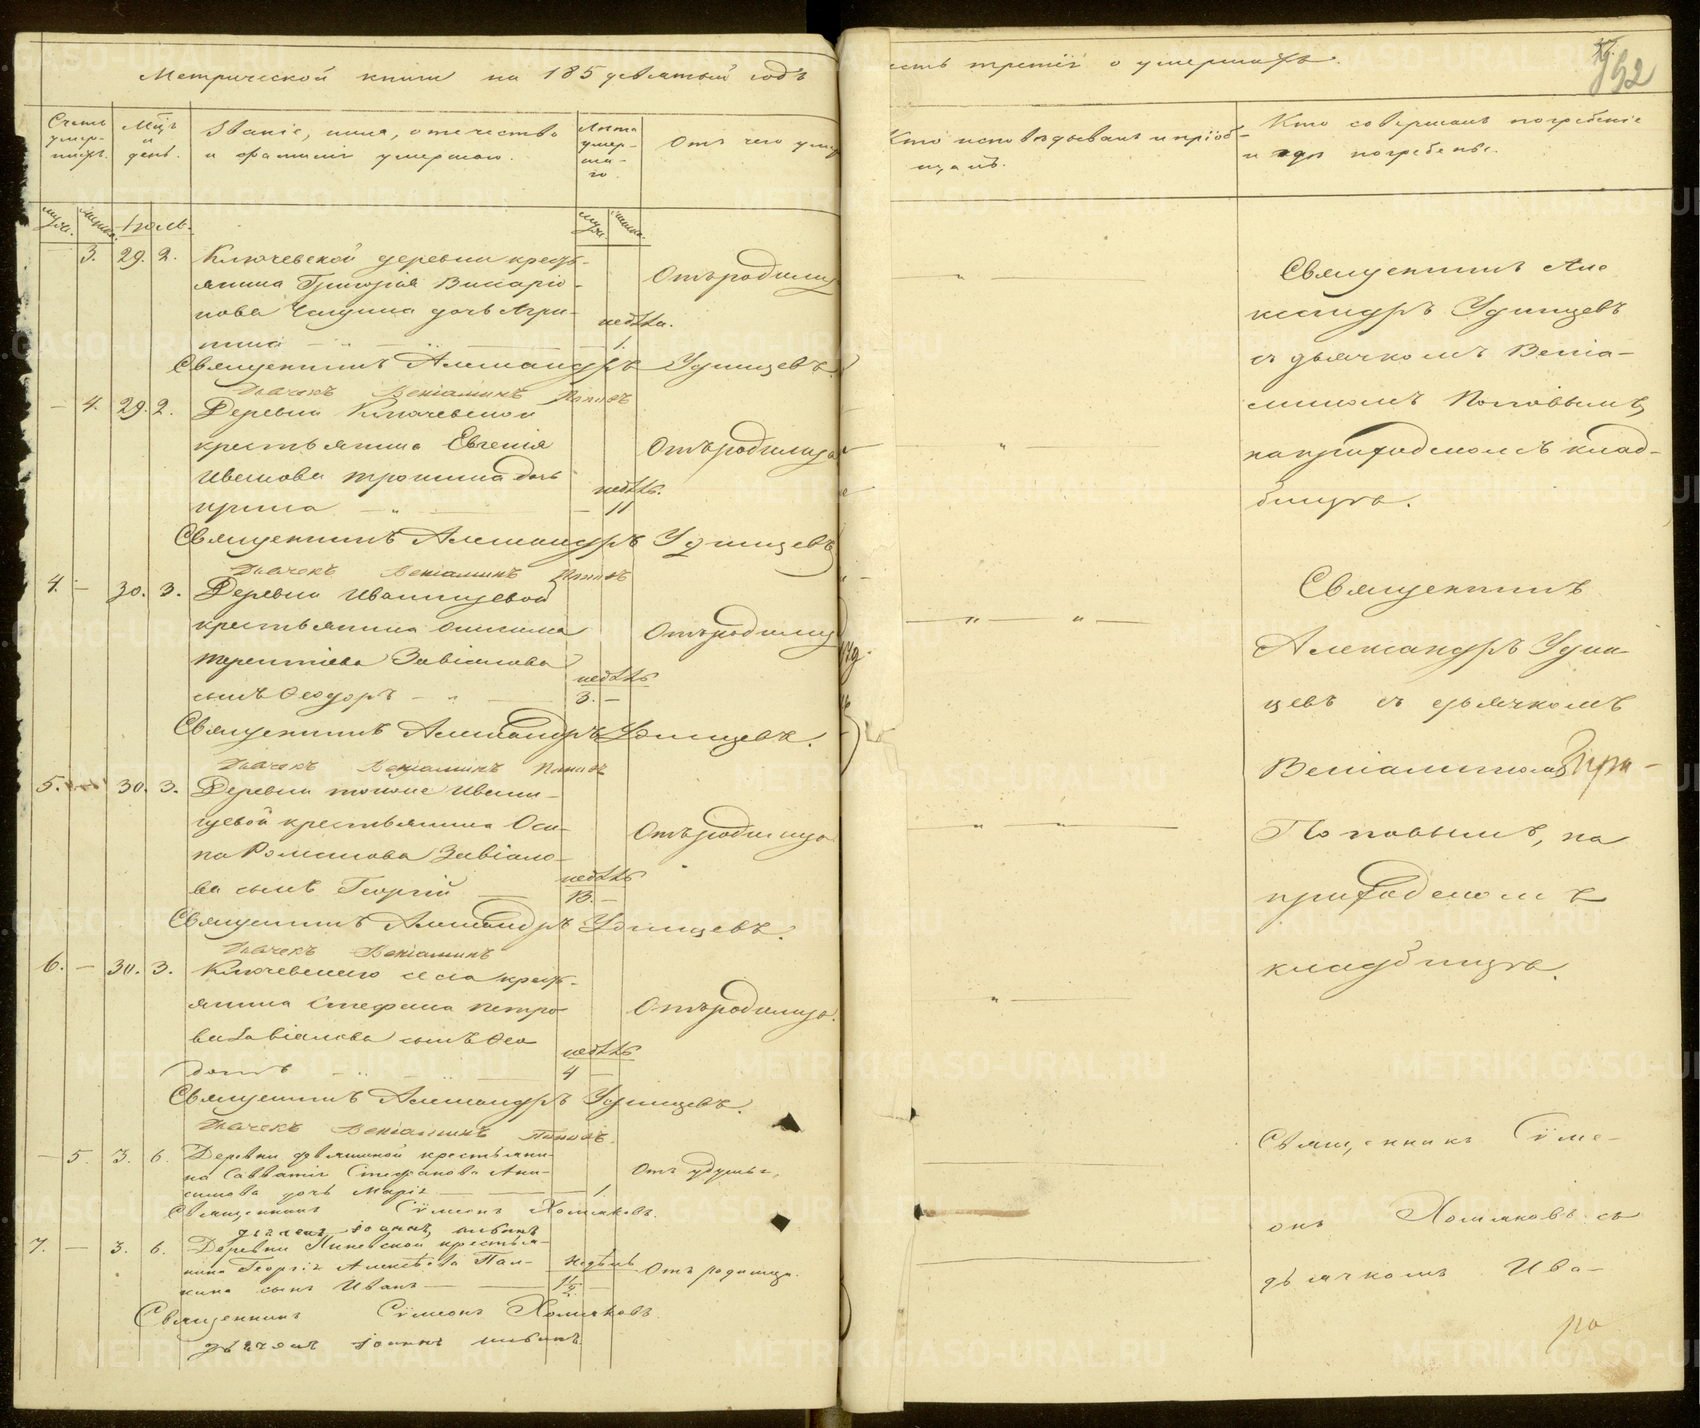 Метрической книги на 185 девятый годъ
Счетъ умер-
шихъ.
Мѣц.
и
день.
Званіе, имя, отечество
и фамилія умершаго.
Лѣта
умер-
ша-
го.
Отъ чего умер
3. 29. 2. Ключевской деревни крест-
янина Григорія Викаріо-
нова дочь Агри-
пина
недѣля.
1.
Отъ родимца
Священникъ Александръ Удинцевъ.
Дьячекъ Веніаминъ Поповъ
4. 29. 2. Деревни Ключевской
крестьянина Евгенія
Иванова Тронина дочь
Ирина
недѣль.
11
Отъ родимца
Священникъ Александръ Удинцевъ
Дьячекъ Веніаминъ Поповъ
4. — 30. 3. Деревни Иванищевой
крестьянина Онисима
Терентіева Завіалова
сынъ Ѳеодоръ
недѣль
3. —
Отъ родимца
Священникъ Александръ Удинцевъ.
Дьячекъ Веніаминъ Поповъ
5. 30. 3. Деревни тоже Ивани-
щевой крестьянина Оси-
па Романова Завіало-
ва сынъ Георгій
недѣль
13. —
Отъ родимца
Священникъ Александръ Удинцевъ.
Дьячекъ Веніаминъ
6. — 30. 3. Ключевскаго села крест-
янина Стефана Петро-
ва Завіалова сынъ Ѳео-
дотъ
недѣль
4 —
Отъ родимца.
Священникъ Александръ Удинцевъ.
Дьячекъ Веніаминъ Поповъ.
— 5. 3. 6. Деревни крестьяни-
на Савватія Стефанова Ани-
симова дочь Марія — 1.
Отъ удушья,
Священникъ Сѵмеонъ Холмаковъ.
дьячекъ Іоаннъ
7. — 3. 6. Деревни крестья-
нина Георгія Алексѣева Пал-
кина сынъ Иванъ
недѣль
1½
Отъ родимца.
Священникъ Сѵмеонъ Холмаковъ
дьячекъ Іоаннъ
есть третія о умершихъ.
952
Кто исповѣдывалъ и пріоб-
щалъ.
Кто совершалъ погребеніе
и гдѣ погребены.
Священникъ Але
ксандръ Удинцевъ
съ дьячкомъ Веніа-
миномъ Поповымъ
на приходскомъ клад-
бищѣ.
Священникъ
Александръ Удин
цевъ съ дьячкомъ
Веніаминомъ
Поповымъ, на
приходскомъ
кладбищѣ.
Священникъ Сѵме-
онъ Холмаковъ съ
дьячкомъ Ива-
но